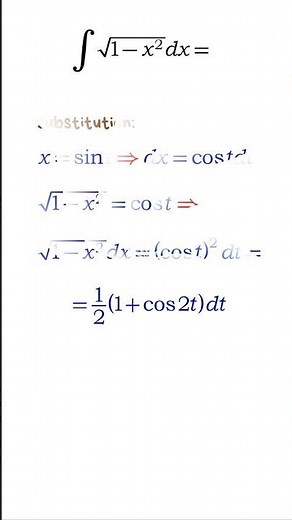 ∫ √1 − x² dx =
Substitution:
x = sin ⇒ dx = cos t d
√1 − x² = cos t ⇒
√1 − x² dx = (cos t)² dt =
= 1/2 (1 + cos 2t) dt